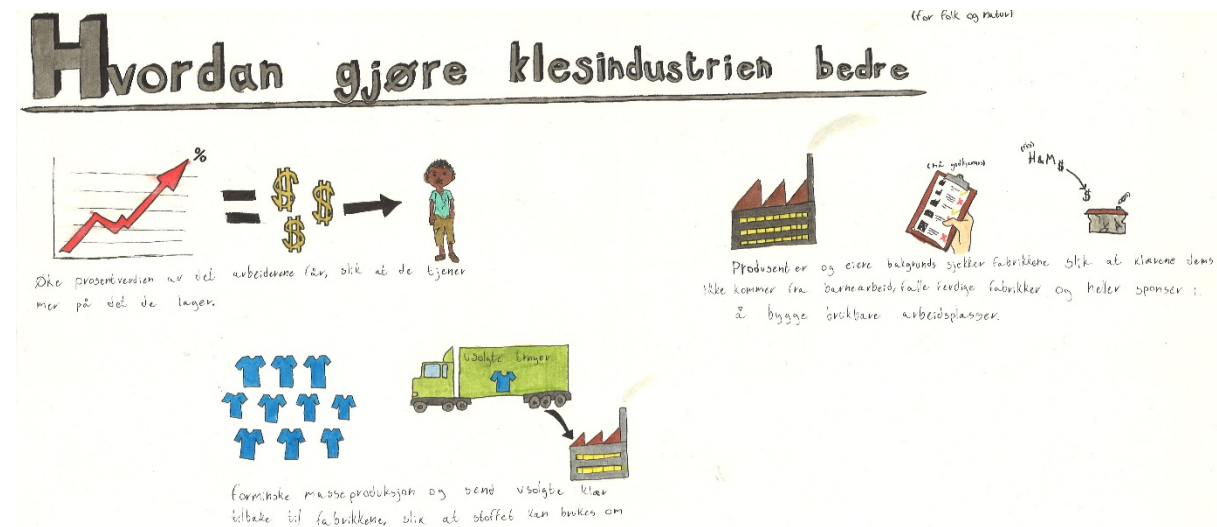 (for folk og natur)
Hvordan gjøre klesindustrien bedre
%
= $ $ $
Øke prosentverdien av det arbeiderene får, slik at de tjener
mer på det de lager.
(må godkjennes)
H&M $
$
Produsenter og eiere bakgrunds sjekker fabrikkene slik at klærene dems
ikke kommer fra barnearbeid, falle ferdige fabrikker og heller sponser i
å bygge brukbare arbeidsplasser.
usolgte trøyer
forminske masseproduksjon og send usolgte klær
tilbake til fabrikkene, slik at stoffet kan brukes om